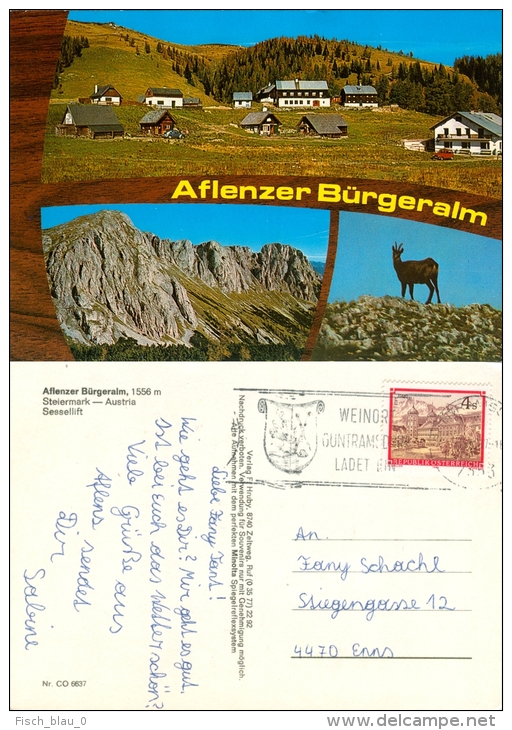 Aflenzer Bürgeralm
Aflenzer Bürgeralm, 1556 m
Steiermark — Austria
Sessellift
Verlag F. Hruby, 8740 Zeltweg, Ruf (0 35 77) 22 92
Nachdruck verboten. Verwendung für Souvenirs nur mit Genehmigung möglich.
Alle Aufnahmen mit dem perfekten Minolta Spiegelreflexsystem
WEINOR
GUNTRAMSD
LADET EIN
4 S
REPUBLIK ÖSTERREICH
Liebe Fany Tant!
Wie geht es Dir? Mir geht es gut.
Ist bei Euch das Wetter schön?
Viele Grüße aus
Aflenz sendet
Dir
Sabine
An.
Fany Schachl
Stiegengasse 12
4470 Enns
Nr. CO 6637
Fisch_blau_0
delcampe.net